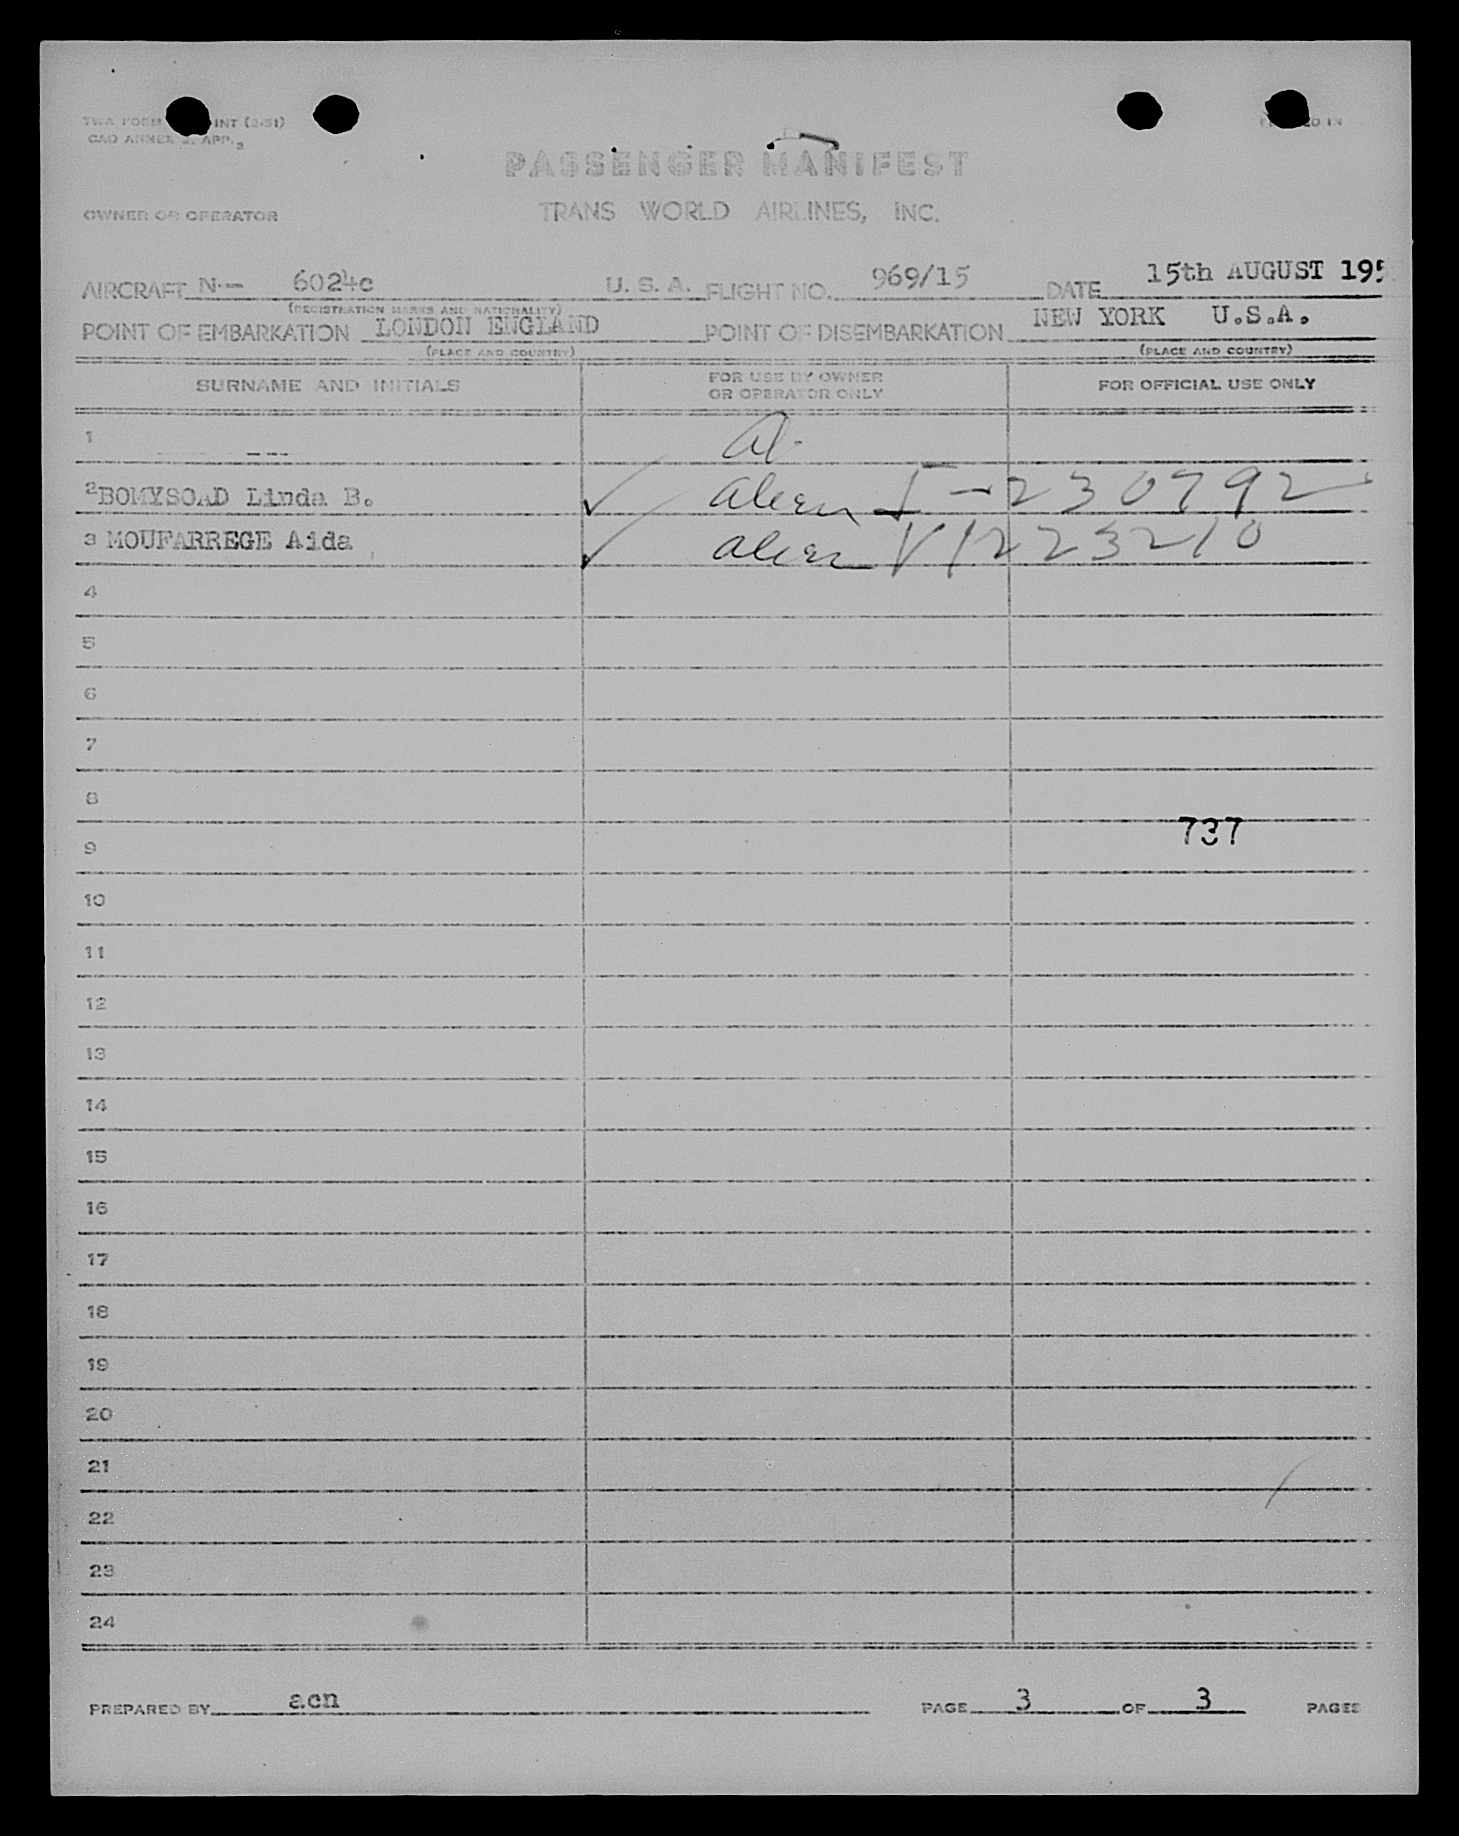 TWA FORM INT (2-51)
CAO ANNEX 9. APP. 3
PASSENGER MANIFEST
OWNER OR OPERATOR TRANS WORLD AIRLINES, INC.
AIRCRAFT N-- 6024c U. S. A. FLIGHT NO. 969/15 DATE 15th AUGUST 195
(REGISTRATION MARKS AND NATIONALITY)
POINT OF EMBARKATION LONDON ENGLAND POINT OF DISEMBARKATION NEW YORK U.S.A.
(PLACE AND COUNTRY) (PLACE AND COUNTRY)
SURNAME AND INITIALS FOR USE BY OWNER OR OPERATOR ONLY FOR OFFICIAL USE ONLY
1
2 BOMYSOAD Linda B. ✓ alien I-230792
3 MOUFARREGE Aida ✓ alien V1223210
4
5
6
7
8
737
9
10
11
12
13
14
15
16
17
18
19
20
21
22
23
24
PREPARED BY acn PAGE 3 OF 3 PAGES